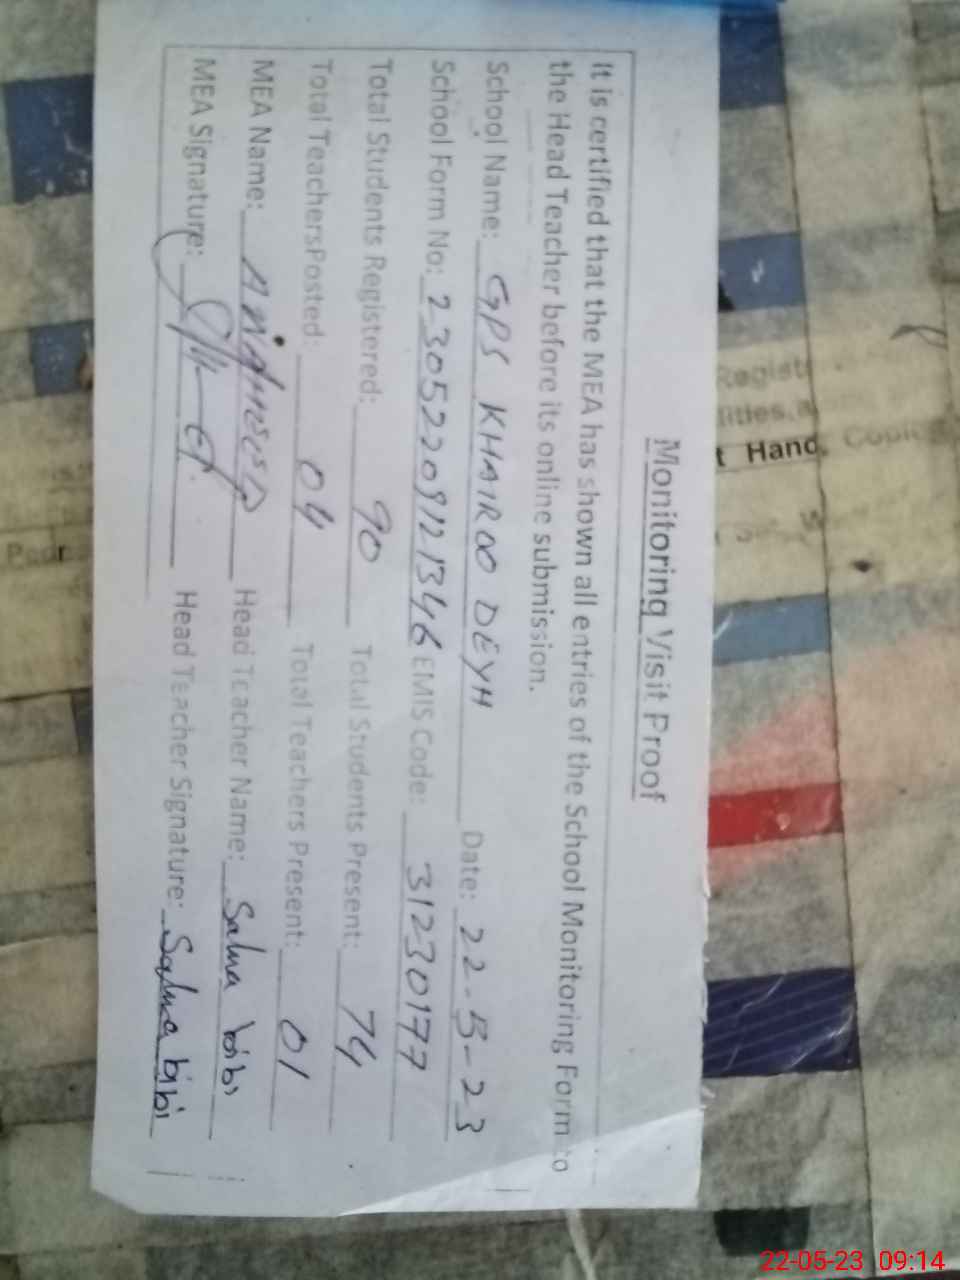 Monitoring Visit Proof
It is certified that the MEA has shown all entries of the School Monitoring Form to
the Head Teacher before its online submission.
School Name: GPS KHAIROO DEYH Date: 22-5-23
School Form No: 230522091121346 EMIS Code: 31230177
Total Students Registered: 90 Total Students Present: 74
Total TeachersPosted: 04 Total Teachers Present: 01
MEA Name: Head Teacher Name: Salma bibi
MEA Signature: Head Teacher Signature: Salma bibi
t Hand. Copie
22-05-23 09:14